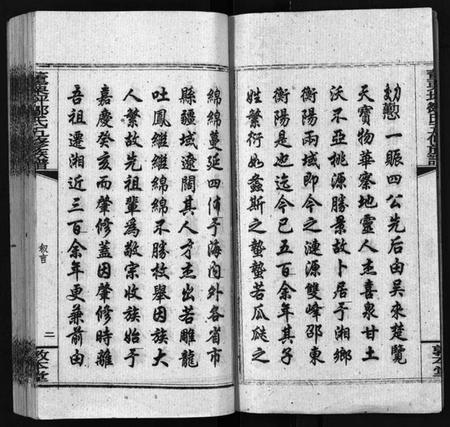 勅懃一賑四公先后由吴來楚覽
天寶物華察地靈人杰喜泉甘土
沃不亞桃源勝景故卜居于湘鄉
衡陽兩域即今之漣源雙峰邵東
衡陽是也迄今已五百余年其子
姓繁衍如螽斯之蟄蟄若瓜瓞之
綿綿蔓延四佈于海内外各省市
縣疆域遼闊其人才杰出若雕龍
吐鳳繼繼綿綿不勝枚舉因族大
人繁故先祖輩為敬宗收族始于
嘉慶癸亥而肇修蓋因肇修時離
吾祖遷湘近三百余年更兼前由
叙言
二
敦本堂